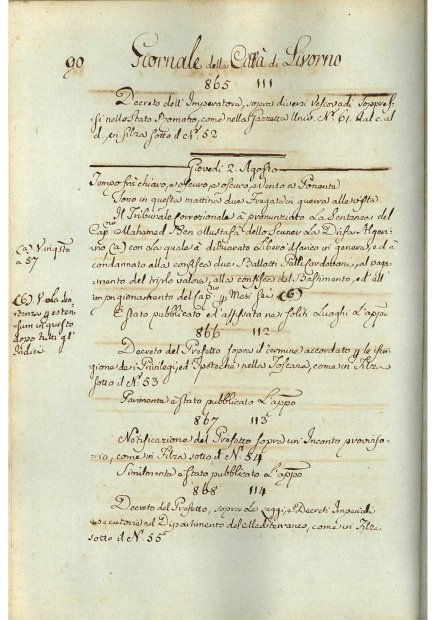 90 Giornale della Città di Livorno
865 111
Decreto dell'Imperatore, sopra diversi Vescovadi soppres-
si nello Stato Romano, come nella Gazzetta Univ. N.º 61. dal c. al
d., in filza sotto il N.º 52
Giovedì 2. Agosto
Tempo frà chiaro, e oscuro, e vento a Ponente
Sono in questa mattina due Fregate in guerra alle viste.
Il Tribunale Correzionale à pronunziato La Sentenza del
Cap.no Mahamed Ben Mustafà dello Scuner La Difesa Algeri-
no, (a) con La quale è dichiarato Libero il carico in generale, ed è
condannato alla confisca due Ballotti Pelli, al paga-
mento del triplo valore, alla confisca del Bastimento, ed all'
imprigionamento del Cap.no p Mesi sei (b)
(a) V. in questo
a 57
(b) V. La Sen-
tenza per esten-
sum in questo
dopo tutti gl'
Indici
È stato pubblicato ed affissato ne' soliti Luoghi L'app.o
866 112
Decreto del Prefetto sopra il termine accordato p le iscri-
zione dei Privilegi, ed Ipoteche nella Toscana, come in Filza
sotto il N.º 53
Parimente è stato pubblicato L'app.o
867 113
Notificazione del Prefetto sopra un' Incanto provviso-
rio, come in Filza sotto il N.º 54
Similmente è stato pubblicato L'app.o
868 114
Decreto del Prefetto, sopra Le Leggi, e Decreti Imperiali
esecutorie nel Dipartimento del Mediterraneo, come in Filza
sotto il N.º 55